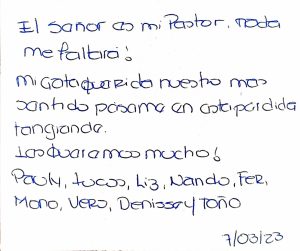 El Señor es mi Pastor, nada
me faltará!
Mi Gata querida nuestro más
sentido pésame en esta pérdida
tan grande.
Los queremos mucho!
Pauly, Lucas, Liz, Nando, Fer,
Mono, Vero, Denisse y Toño
7/03/23